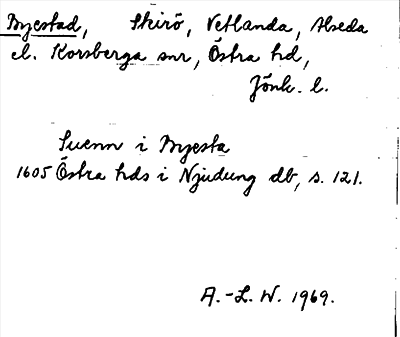 Byestad, Skirö, Vetlanda, Alseda
el. Korsberga snr, Östra hd,
Jönk. l.
Suenn i Byesta
1605 Östra hds i Njudung db, s. 121.
A.-L. W. 1969.